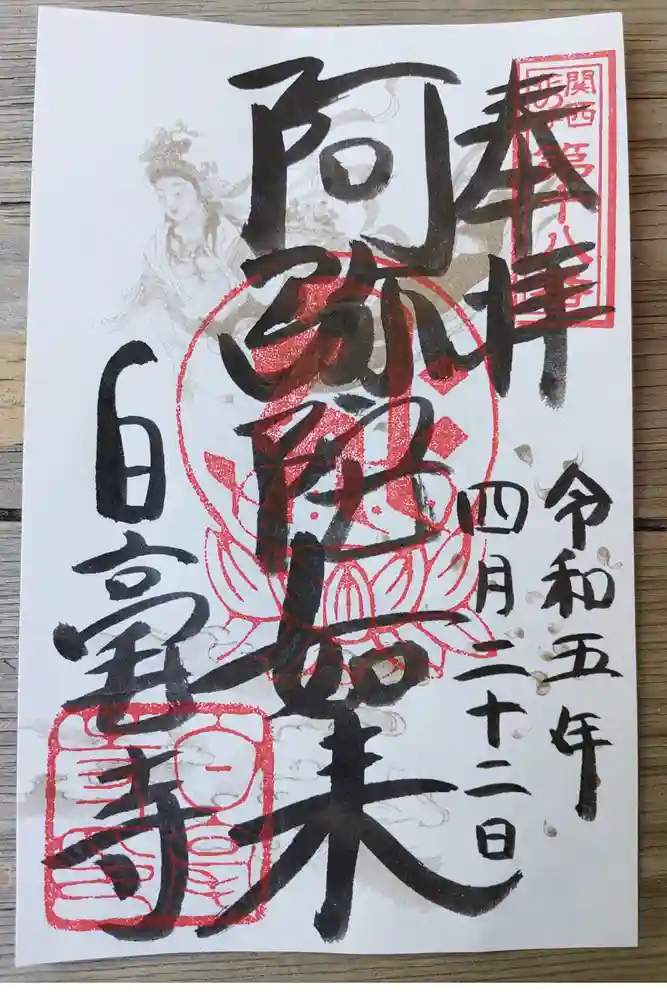 奉拝
関西
第十八番
令和五年
四月二十二日
阿弥陀如来
白毫寺